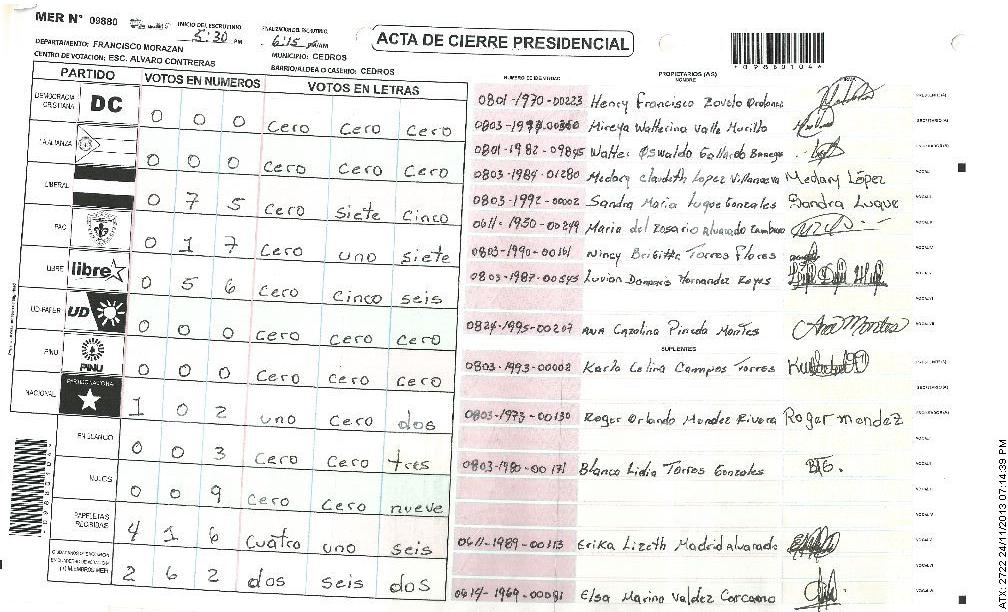 MER N° 09880
INICIO DEL ESCRUTINIO
5:30 PM
FINALIZACION DEL ESCRUTINIO
6:15 PM
ACTA DE CIERRE PRESIDENCIAL
DEPARTAMENTO: FRANCISCO MORAZAN
MUNICIPIO: CEDROS
CENTRO DE VOTACION: ESC. ALVARO CONTRERAS
BARRIO/ALDEA O CASERIO: CEDROS
PARTIDO VOTOS EN NUMEROS VOTOS EN LETRAS
DEMOCRACIA CRISTIANA DC 0 0 0 Cero Cero Cero
LA ALIANZA 0 0 0 Cero Cero Cero
LIBERAL 0 7 5 Cero siete cinco
PAC 0 1 7 Cero uno siete
LIBRE libre 0 5 6 Cero Cinco seis
UD-FAPER UD 0 0 0 Cero Cero Cero
PINU PINU 0 0 0 Cero Cero Cero
NACIONAL PARTIDO NACIONAL 1 0 2 uno Cero dos
EN BLANCO 0 0 3 Cero Cero tres
NULOS 0 0 9 Cero Cero nueve
PAPELETAS RECIBIDAS 4 1 6 Cuatro uno seis
2 6 2 dos seis dos
NUMERO DE IDENTIDAD
PROPIETARIOS (AS)
NOMBRE
0801-1970-00223 Henry Francisco Zavala Ordonez
Mireya Walterina Valle Murillo
0801-1982-09845 Walter Oswaldo Gallardo
0803-1984-01280 Medary Claudeth Lopez Villanueva Medary López
0803-1992-00002 Sandra Maria Luque Gonzales Sandra Luque
0611-1950-00249 Maria del Rosario Alvarado Zambrano
0803-1990-00161 Nincy Brigitte Torres Flores
0803-1987-00545 Luvian Damaris Hernandez Reyes
0824-1995-00207 Ana Carolina Pineda Montes Ana Montes
SUPLENTES
0803-1993-00002 Karla Celina Campos Torres
0803-1973-00130 Roger Orlando Mendez Rivera Roger mendez
0803-1980-00171 Blanca Lidia Torres Gonzales
0611-1989-00113 Erika Lizeth Madrid Alvarado
0614-1969-00081 Elsa Marina Valdez Carcamo
2722 24/11/2013 07:14:39 PM